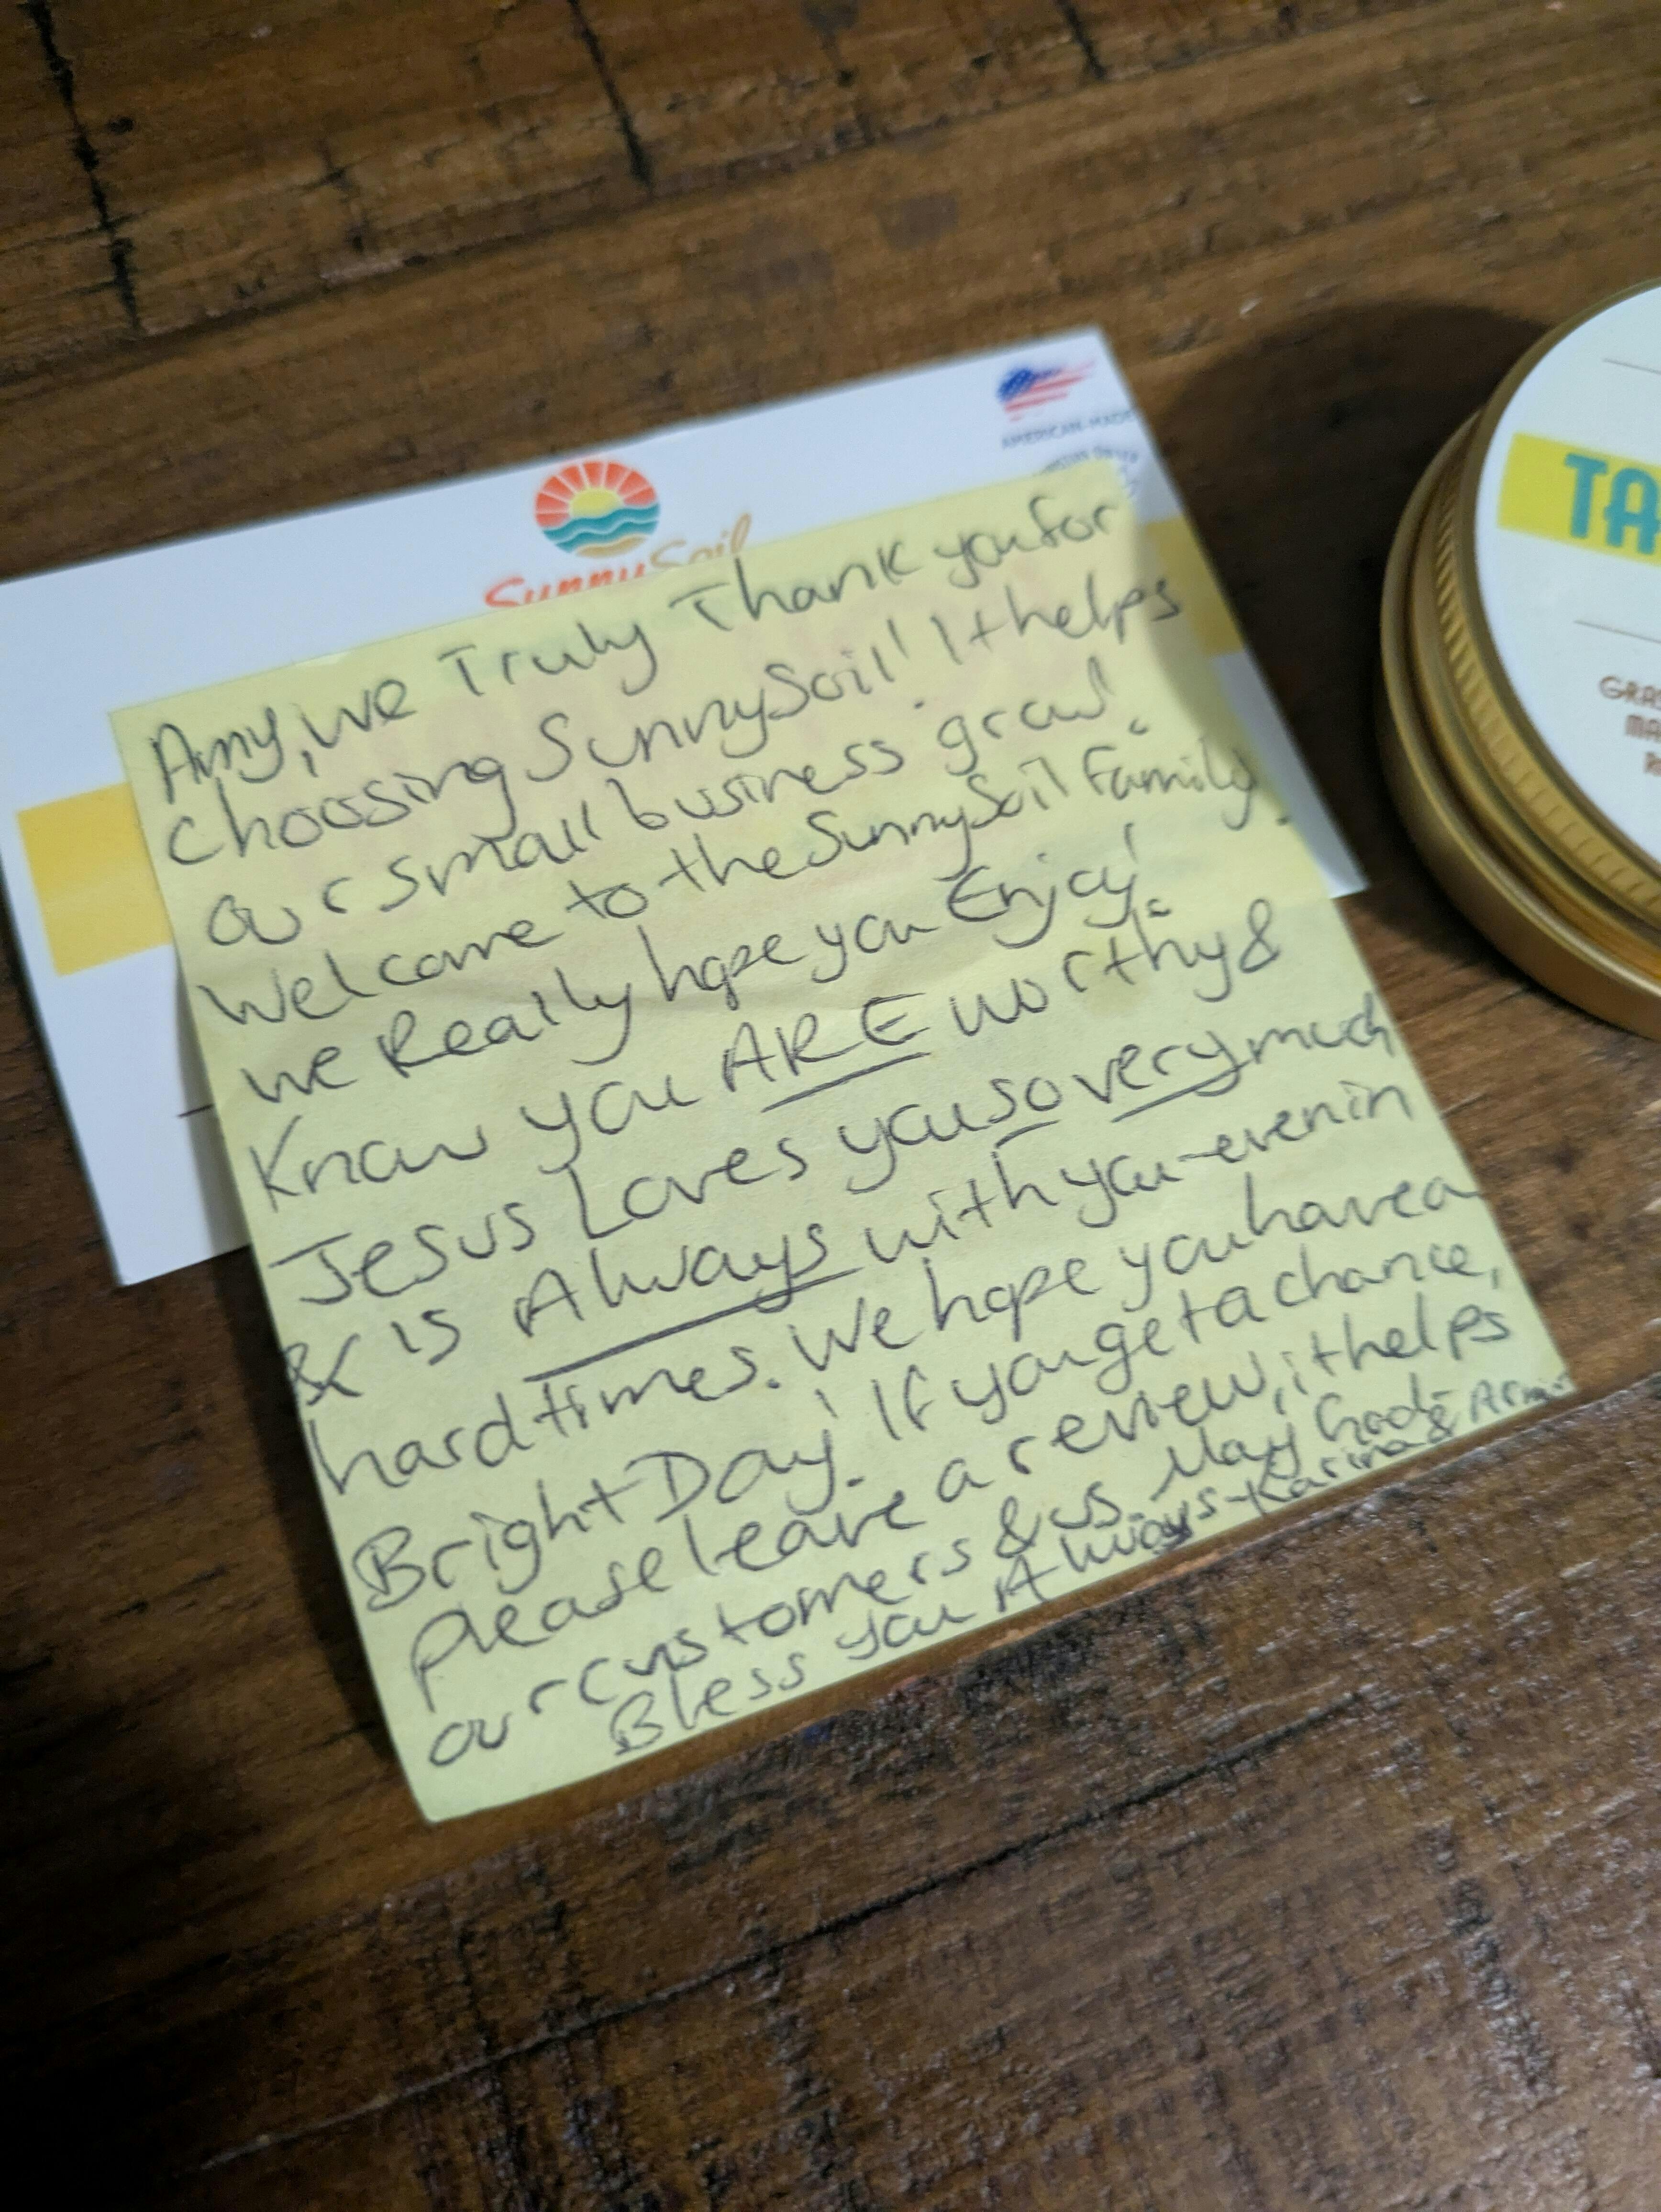 AMERICAN-MADE
SunnySoil
Amy, we Truly Thank you for
choosing SunnySoil! It helps
our small business grow!
Welcome to the SunnySoil Family.
we Really hope you Enjoy!
Know you ARE worthy &
Jesus Loves you so very much
& is Always with you-even in
hard times. We hope you have a
Bright Day! If you get a chance,
please leave a review, it helps
our customers & us. May God
Bless you Always -Karina &
TA
GRAS
MA